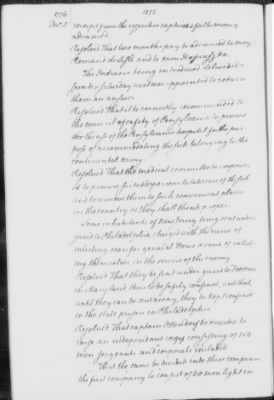 1776
Decr. 5.
receipt from the respective captains for the money
advanced.
Resolved That two months pay be advanced to mons.
Romand de Lisle and to
The Indians being introduced
Saturday next was appointed to return
them an answer.
Resolved That it be earnestly recommended to
the council of safety of Pensylvania to procure
the use of the Pensylvania hospital for the pur-
pose of accommodating the sick belonging to the
continental army.
Resolved That the medical committee be empower
ed to procure for the care of the sick
and to remove them to such convenient places
in the country as they shall think proper.
Some inhabitants of being sent under
guard to Philadelphia charged with the crime of
enlisting men for general Howe & some of
ing themselves in the service of the enemy
Resolved That they be sent under guard to
in Maryland there to be safely confined, and that
until they can be sent away, they be kept confined
in the state prison in Philadelphia.
Resolved That captain Ottendorf be ordered to
raise an independant corps consisting of 150
men, serjeants and corporals included
That the same be divided into three companies
the first company to consist of 60 men light in-